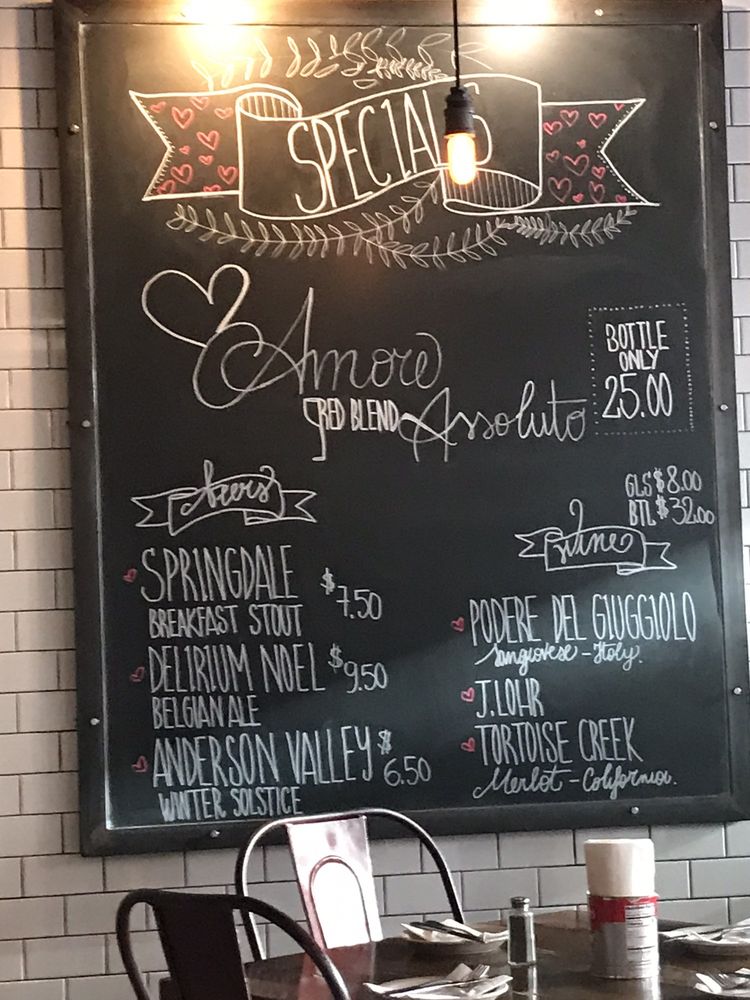 SPECIALS
Amore
RED BLEND Assoluto
BOTTLE
ONLY
25.00
Beers
SPRINGDALE $7.50
BREAKFAST STOUT
DELIRIUM NOEL $9.50
BELGIAN ALE
ANDERSON VALLEY $6.50
WINTER SOLSTICE
GLS $8.00
BTL $32.00
Wine
PODERE DEL GIUGGIOLO
Sangiovese - Italy.
J.LOHR
TORTOISE CREEK
Merlot - California.